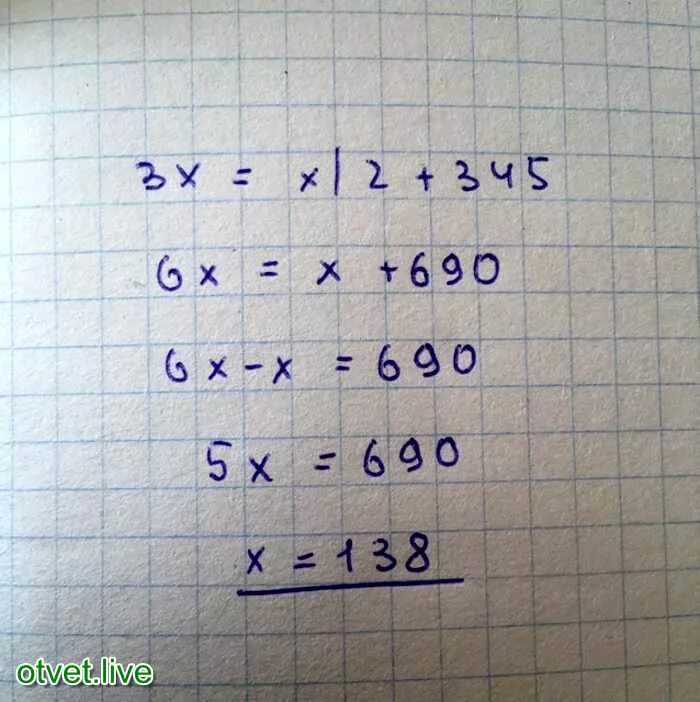 3x = x/2 + 345
6x = x + 690
6x - x = 690
5x = 690
x = 138
otvet.live